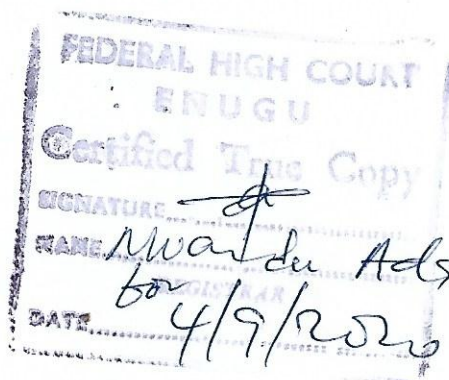 FEDERAL HIGH COURT
ENUGU
Certified True Copy
SIGNATURE
NAME
for REGISTRAR
DATE 4/9/2020